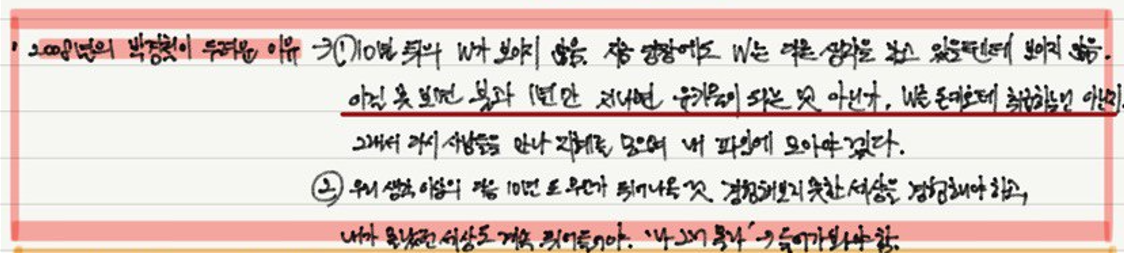 · 2008년의 박경철이 두려워한 이유 → ① 10년 뒤의 W가 보이지 않음. 지금 당장에도 W는 다른 생각을 갖고 있을텐데 보이지 않음.
이걸 못 보면 불과 1년만 지나면 웃기는 되는 것 아닌가. W를 취급하는건 아닌지
그래서 다시 사람들을 만나 지혜를 모으며 내 파일에 모아야겠다.
② 우리 생각 이상의 다음 10년 또 무언가 튀어나올 것 경험해보지 못한 세상을 경험해야 하고,
내가 몰랐던 세상도 계속 뛰어들어야. '나 그거 몰라' → 들어가봐야 함.